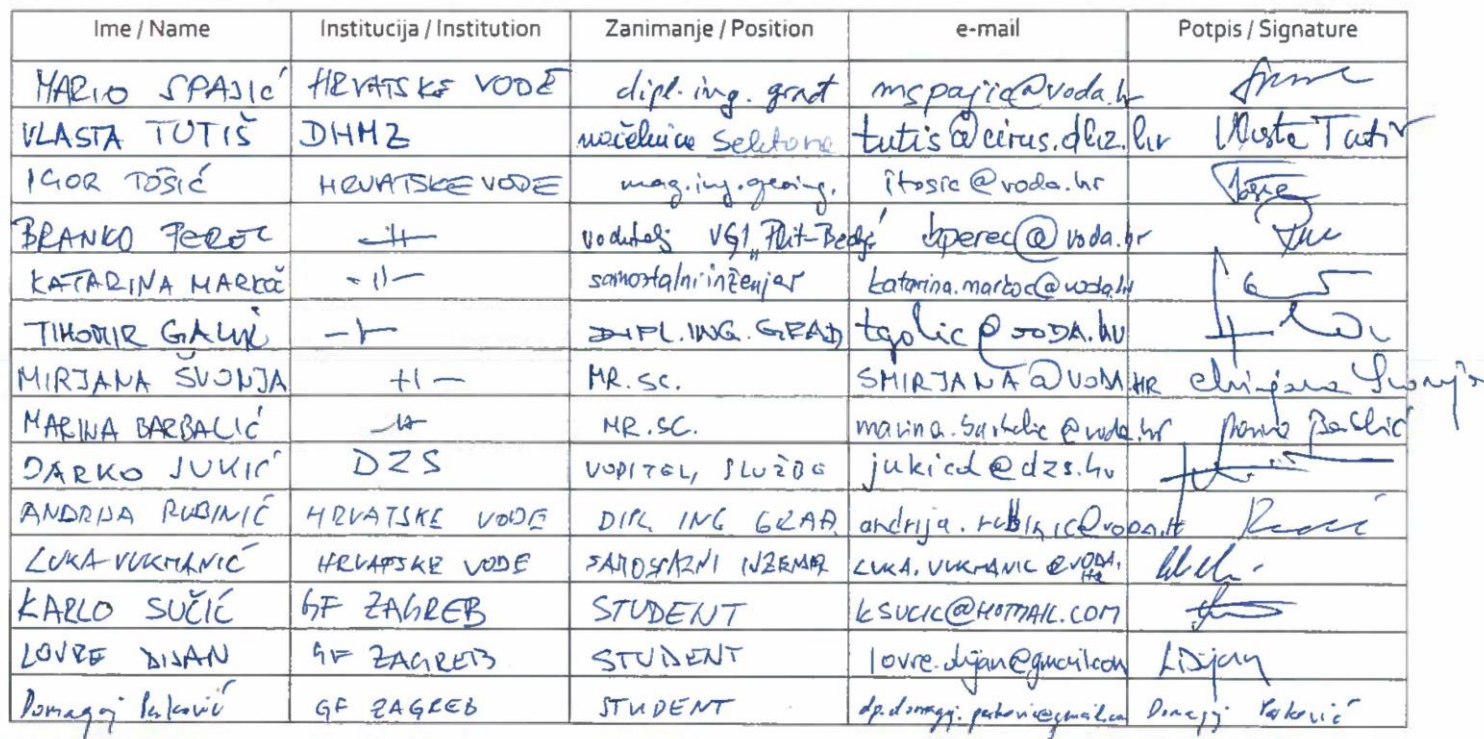 Ime / Name Institucija / Institution Zanimanje / Position e-mail Potpis / Signature
MARIO SPAJIĆ HRVATSKE VODE dipl. ing. građ mspajic@voda.hr
VLASTA TUTIŠ DHMZ načelnica Sektora tutis@cirus.dhz.hr Vlasta Tutiš
IGOR TOŠIĆ HRVATSKE VODE mag.ing.geoing. itosic@voda.hr
BRANKO PEREC -11- voditelj VGI bperec@voda.hr
KATARINA MARKOČ -11- samostalni inženjer katarina.markoc@voda.hr
TIHOMIR GALIĆ DIPL.ING.GRAĐ @VODA.hr
MIRJANA ŠVONJA MR.SC. SMIRJANA@VODA.HR Mirjana Švonja
MARINA BARBALIĆ -11- MR.SC. marina.barbalic@voda.hr Barbalić
DARKO JUKIĆ DZS VODITELJ SLUŽBE jukicd@dzs.hr
ANDRIJA RUBINIĆ HRVATSKE VODE DIPL ING GRAĐ. andrija.rubinic@voda.hr
LUKA VUKMANIĆ HRVATSKE VODE INŽENJER LUKA.VUKMANIC@VODA.HR
KARLO SUČIĆ GF ZAGREB STUDENT KSUCIC@HOTMAIL.COM
LOVRE DIJAN GF ZAGREB STUDENT lovre.dijan@gmail.com LDijan
Domagoj Perković GF ZAGREB STUDENT dp.domagoj.perkovic@gmail.com Domagoj Perković